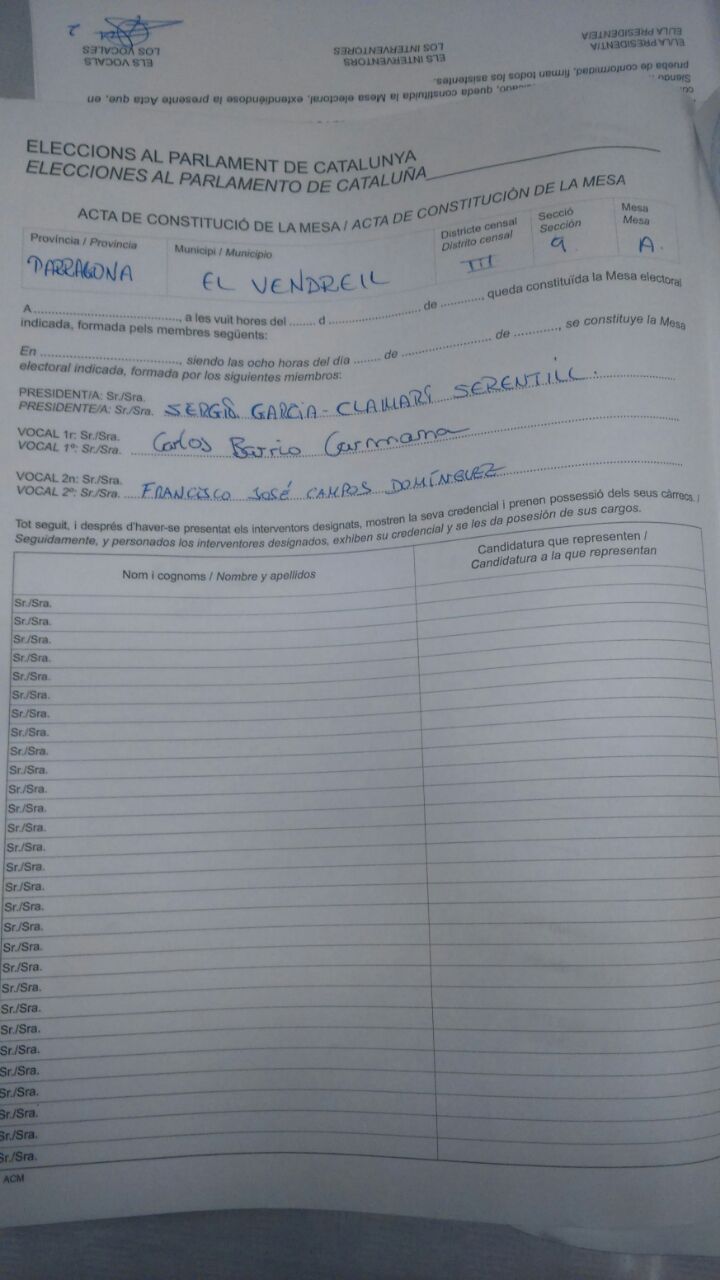 ELS VOCALS
LOS VOCALES
ELS INTERVENTORS
LOS INTERVENTORES
EL/LA PRESIDENT/A
EL/LA PRESIDENTE/A
prueba de conformidad, firman todos los asistentes.
queda constituida la Mesa electoral, extendiéndose la presente Acta que, en
ELECCIONS AL PARLAMENT DE CATALUNYA
ELECCIONES AL PARLAMENTO DE CATALUÑA
ACTA DE CONSTITUCIÓ DE LA MESA / ACTA DE CONSTITUCIÓN DE LA MESA
Província / Provincia
Municipi / Municipio
Districte censal
Distrito censal
Secció
Sección
Mesa
Mesa
TARRAGONA
EL VENDRELL
III
9
A.
A ........................, a les vuit hores del ........ d ........................ de ............, queda constituïda la Mesa electoral
indicada, formada pels membres següents:
En ........................, siendo las ocho horas del día ........ de ........................ de ............, se constituye la Mesa
electoral indicada, formada por los siguientes miembros:
PRESIDENT/A: Sr./Sra.
PRESIDENTE/A: Sr./Sra. SERGIO GARCIA-
VOCAL 1r: Sr./Sra.
VOCAL 1º: Sr./Sra. Carlos Barrio Carmona
VOCAL 2n: Sr./Sra.
VOCAL 2º: Sr./Sra. FRANCISCO JOSÉ CAMPOS DOMÍNGUEZ
Tot seguit, i després d'haver-se presentat els interventors designats, mostren la seva credencial i prenen possessió dels seus càrrecs. /
Seguidamente, y personados los interventores designados, exhiben su credencial y se les da posesión de sus cargos.
Nom i cognoms / Nombre y apellidos
Candidatura que representen /
Candidatura a la que representan
Sr./Sra.
Sr./Sra.
Sr./Sra.
Sr./Sra.
Sr./Sra.
Sr./Sra.
Sr./Sra.
Sr./Sra.
Sr./Sra.
Sr./Sra.
Sr./Sra.
Sr./Sra.
Sr./Sra.
Sr./Sra.
Sr./Sra.
Sr./Sra.
Sr./Sra.
Sr./Sra.
Sr./Sra.
Sr./Sra.
Sr./Sra.
Sr./Sra.
Sr./Sra.
Sr./Sra.
Sr./Sra.
Sr./Sra.
Sr./Sra.
Sr./Sra.
Sr./Sra.
ACM